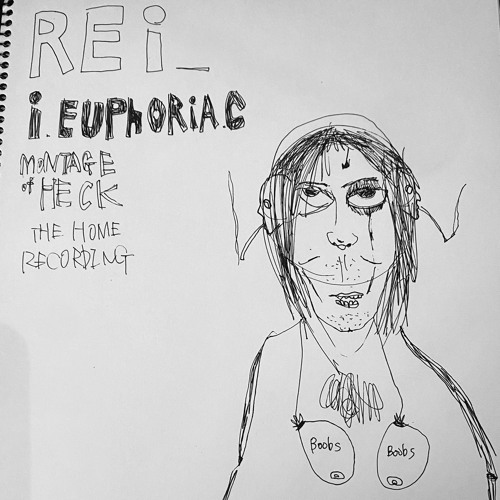 REi_
i.EUPhORiA.C
MONTAGE
of HECK
THE HOME
RECORDING
Boobs
Boobs